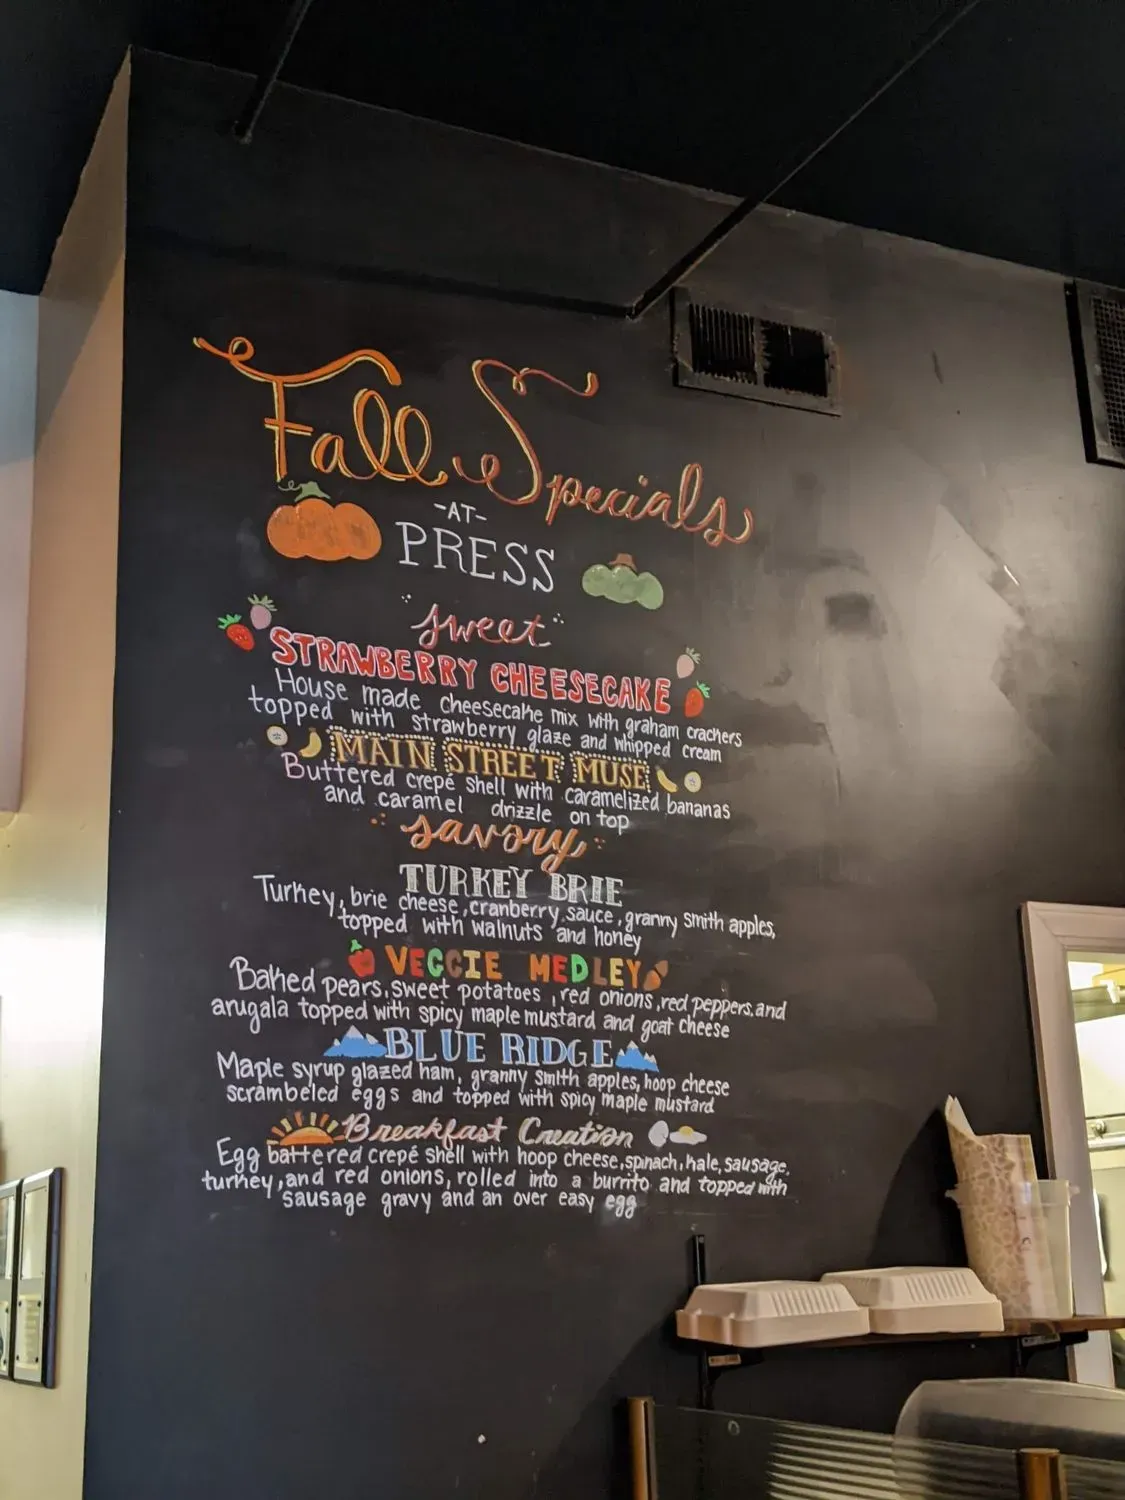 Fall Specials
-AT-
PRESS
sweet
STRAWBERRY CHEESECAKE
House made cheesecake mix with graham crackers
topped with strawberry glaze and whipped cream
MAIN STREET MUSE
Buttered crepé shell with caramelized bananas
and caramel drizzle on top
savory
TURKEY BRIE
Turkey, brie cheese, cranberry sauce, granny smith apples,
topped with walnuts and honey
VEGGIE MEDLEY
Baked pears, sweet potatoes, red onions, red peppers, and
arugala topped with spicy maple mustard and goat cheese
BLUE RIDGE
Maple syrup glazed ham, granny smith apples, hoop cheese
scrambeled eggs and topped with spicy maple mustard
Breakfast Creation
Egg battered crepé shell with hoop cheese, spinach, kale, sausage,
turkey, and red onions, rolled into a burrito and topped with
sausage gravy and an over easy egg